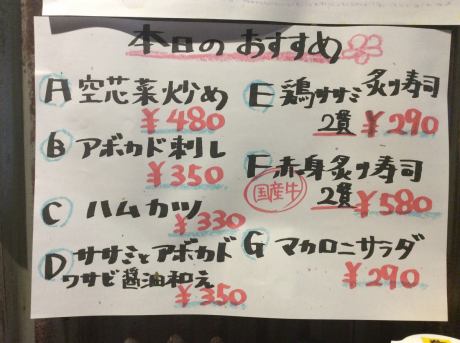 本日のおすすめ
A 空芯菜炒め
￥480
B アボカド刺し
￥350
C ハムカツ
￥330
D ササミとアボカド
ワサビ醤油和え
￥350
E 鶏ササミ炙り寿司
2貫 ￥290
F 赤身炙り寿司
国産牛
2貫 ￥580
G マカロニサラダ
￥290